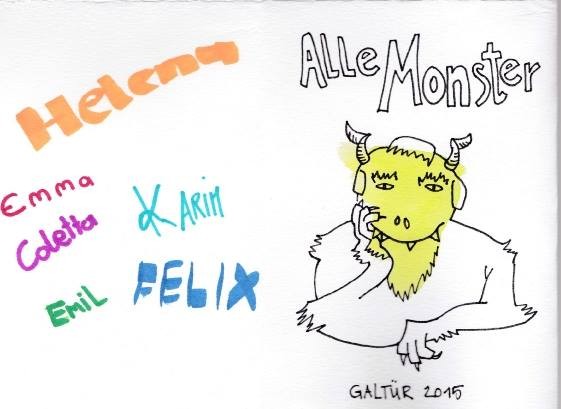 Helena
Emma
Coletta
KARIM
Emil
FELIX
ALLE MONSTER
GALTÜR 2015